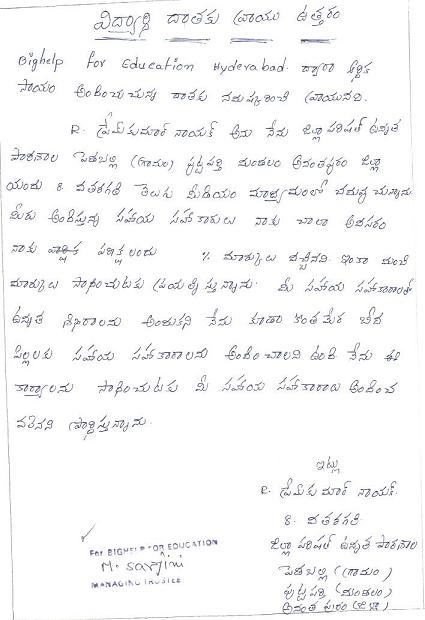 విద్యార్థి దాతకు వ్రాయు ఉత్తరం
Bighelp for Education Hyderabad. ద్వారా ఆర్థిక
సాయం అందించుచున్న దాతకు నమస్కరించి వ్రాయునది.
R. ప్రేమ్ కుమార్ నాయక్ అను నేను జిల్లా పరిషత్ ఉన్నత
పాఠశాల పెడబల్లి (గ్రామం) పుట్టపర్తి మండలం అనంతపురం జిల్లా
యందు 8 వతరగతి తెలుగు మీడియం మాధ్యమంలో చదువుచున్నాను
మీరు అందిస్తున్న సహాయ సహకారులు నాకు చాలా అవసరం
నాకు వార్షిక పరిక్షలందు % మార్కులు వచ్చినవి. ఇంకా మంచి
మార్కులు సాధించుటకు ప్రయత్నిస్తున్నాను. మీ సహాయ సహాకారాలతో
ఉన్నత శిఖరాలను అందుకుని నేను కూడా కొంతమేర బేద
పిల్లలకు సహాయ సహాకారాలను అందించాలని ఉంది నేను ఈ
కార్యాలను సాధించుటకు మీ సహాయ సహాకారాలు అందించ
వలెనని ప్రార్థిస్తున్నాను.
ఇట్లు
R. ప్రేమ్ కుమార్ నాయక్.
8. వతరగతి
జిల్లా పరిషత్ ఉన్నత పాఠశాల
పెడబల్లి (గ్రామం)
పుట్టపర్తి (మండలం)
అనంతపురం (జిల్లా)
For BIGHELP FOR EDUCATION
M. Sarojini
MANAGING TRUSTEE